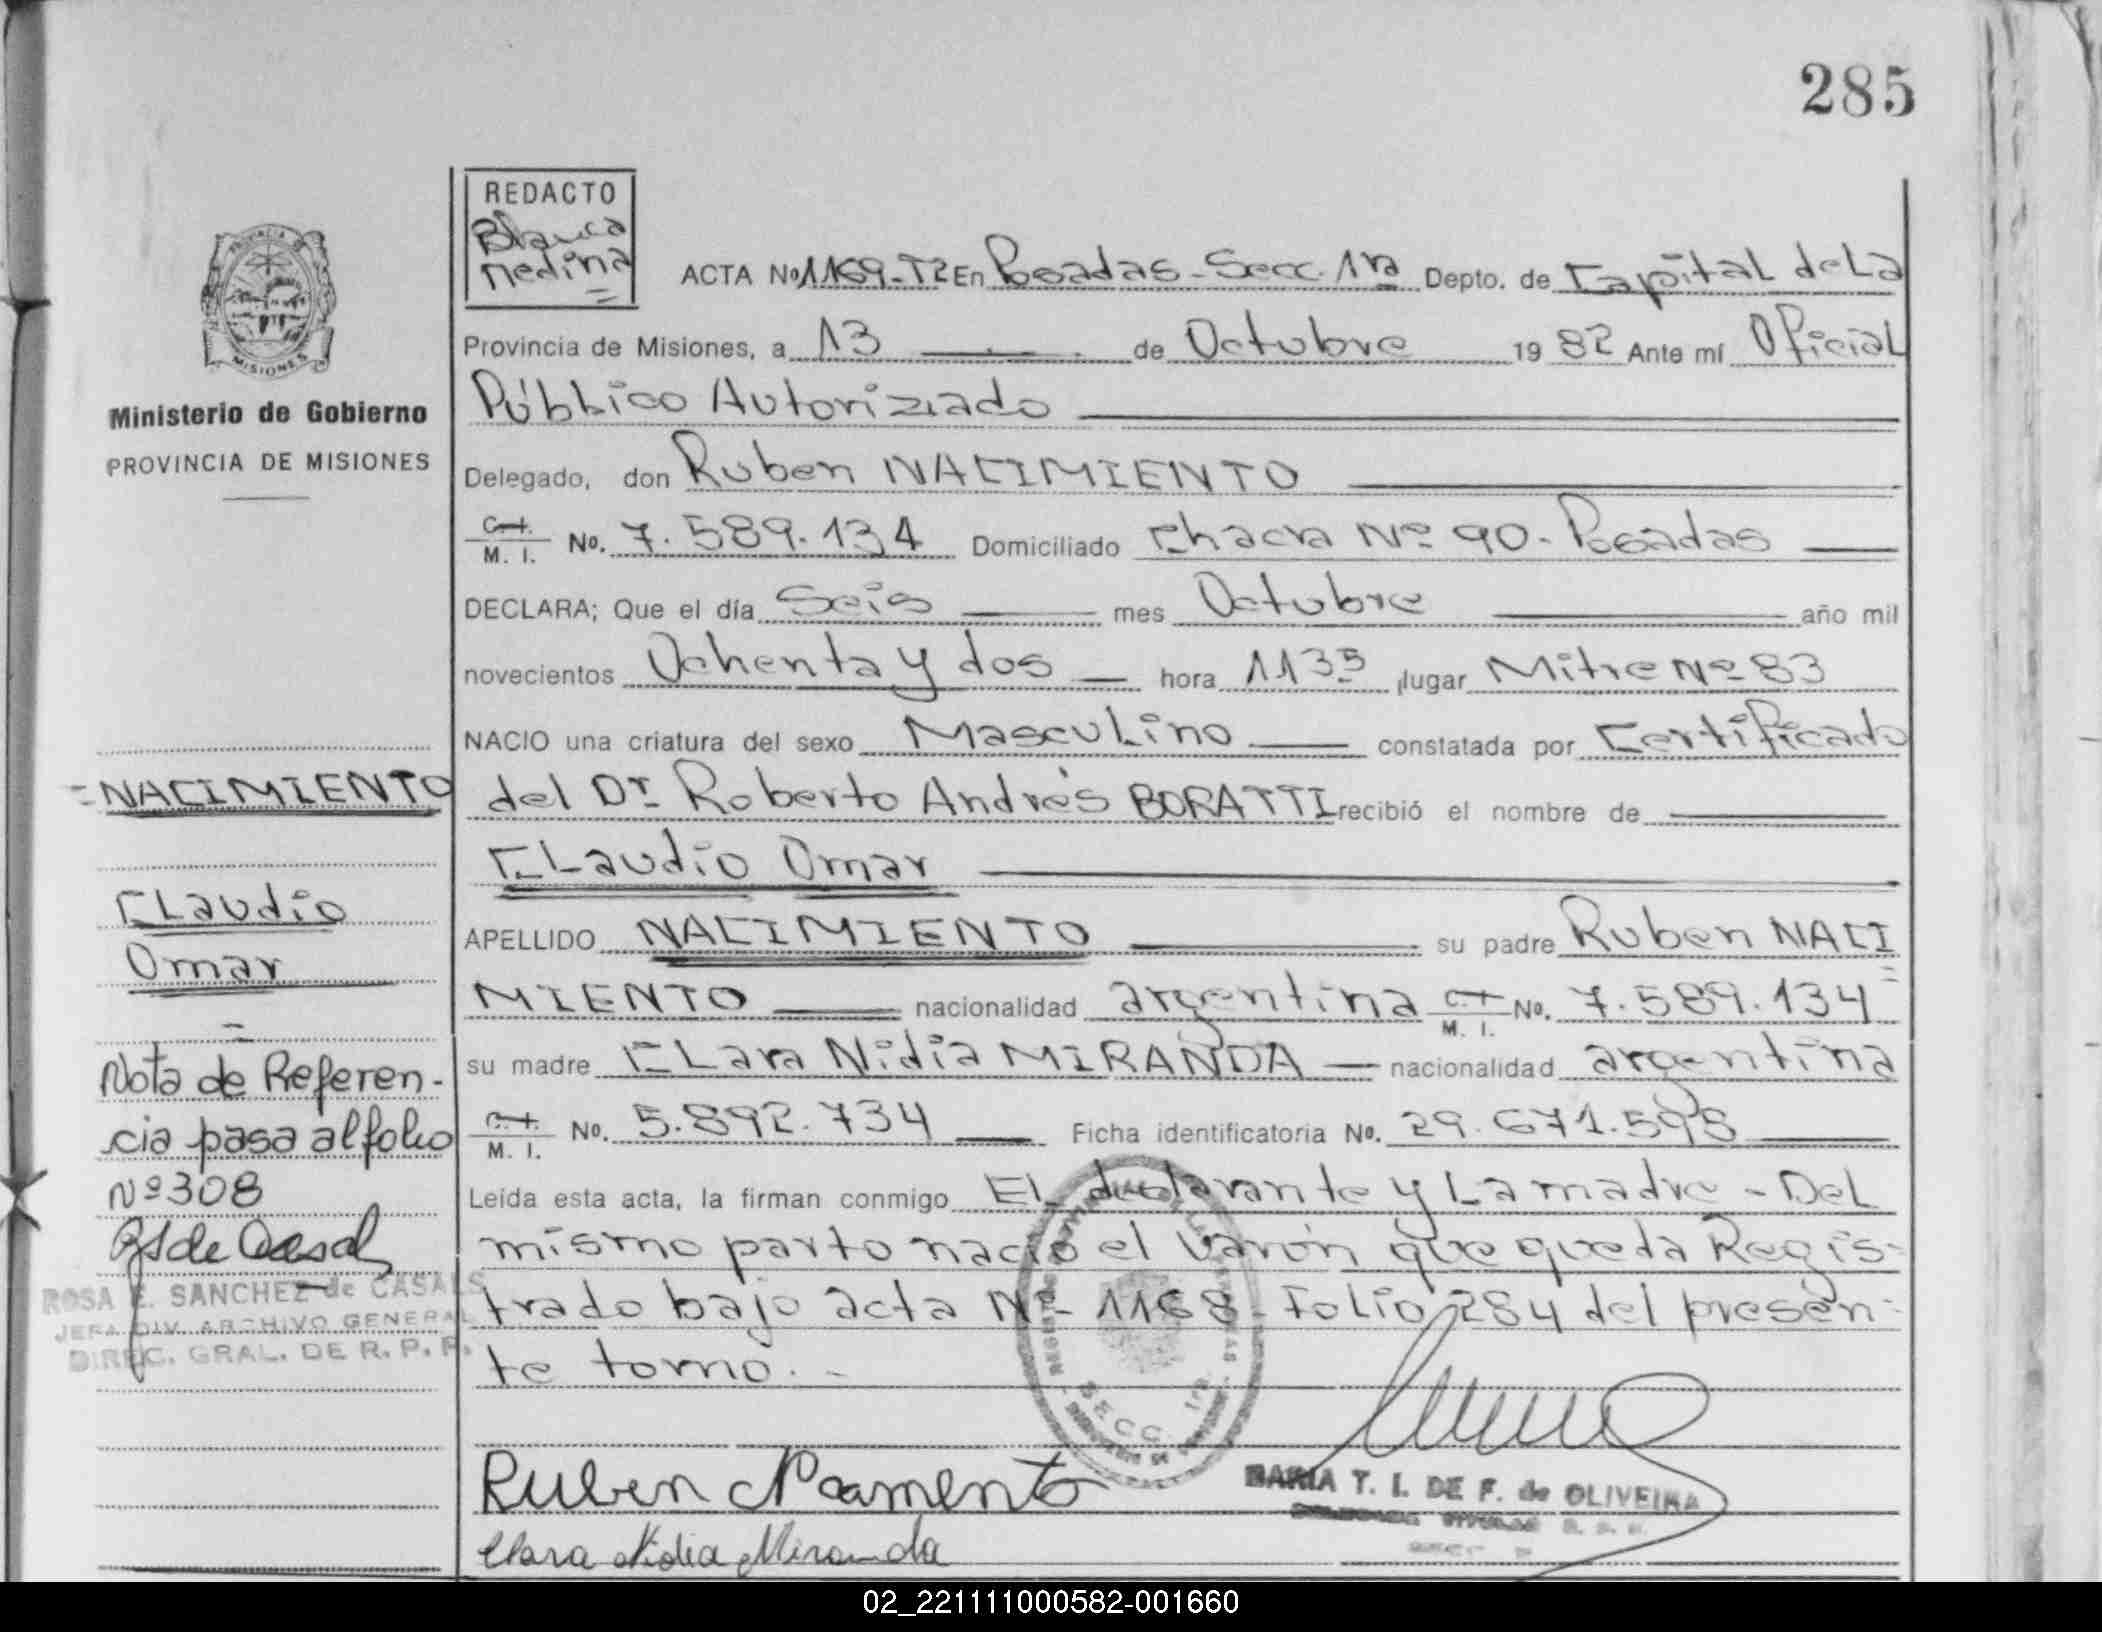 285
REDACTO
Blanca
Medina
ACTA No 1169-T2 En Posadas-Secc. 1ra Depto. de Capital de La
Provincia de Misiones, a 13 de Octubre 19 82 Ante mí Oficial
Público Autorizado
Delegado, don Ruben NACIMIENTO
C. I.
M. I. No. 7.589.134 Domiciliado Chacra Nº 90-Posadas
DECLARA; Que el día Seis mes Octubre año mil
novecientos Ochenta y dos hora 1135 lugar Mitre Nº 83
NACIO una criatura del sexo Masculino constatada por Certificado
del Dr Roberto Andrés BORATTI recibió el nombre de
Claudio Omar
APELLIDO NACIMIENTO su padre Ruben NACI
MIENTO nacionalidad argentina C. I. No. 7.589.134
M. I.
su madre Clara Nidia MIRANDA nacionalidad argentina
C. I.
M. I. No. 5.892.734 Ficha identificatoria No. 29.671.598
Leída esta acta, la firman conmigo El declarante y La madre - Del
mismo parto nació el Varón que queda Regis-
trado bajo acta Nº 1168-Folio 284 del presen-
te tomo.-
Ruben Nacimento
Clara Nidia Miranda
MARIA T. I. DE F. de OLIVEIRA
SECC. 1ra.
PROVINCIA DE
MISIONES
Ministerio de Gobierno
PROVINCIA DE MISIONES
NACIMIENTO
Claudio
Omar
Nota de Referen-
cia pasa al folio
Nº 308
ROSA E. SANCHEZ de CASALS
JEFA DIV. ARCHIVO GENERAL
DIREC. GRAL. DE R. P. P.
02_221111000582-001660